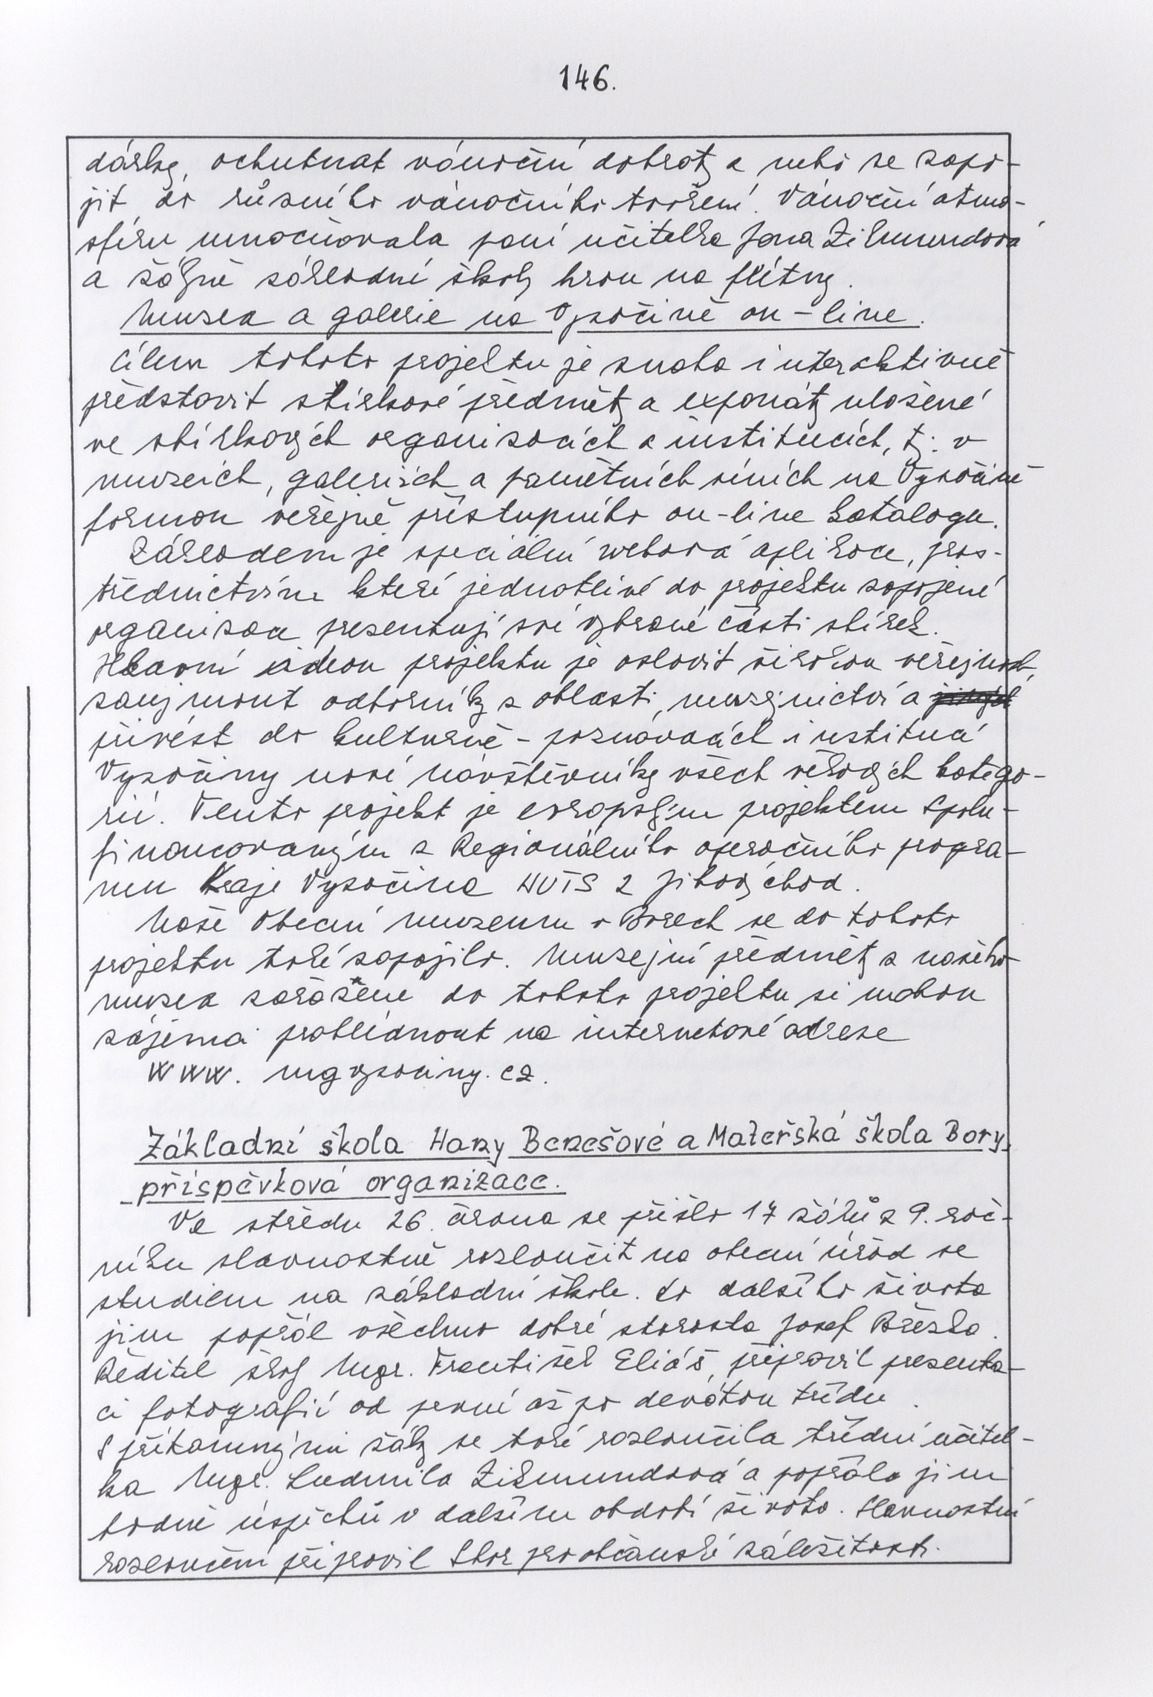 146.
dárky, ochutnat vánoční dobroty a nebo se zapo-
jit do různího vánočního tvoření. Vánoční atmo-
sféru umocňovala paní učitelka Jana Zikmundová
a žáčně základní školy hrou na flétny.
Muzea a galerie na Vysočině on-line.
Cílem tohoto projektu je snaha interaktivně
představit sbírkové předměty a exponáty uložené
ve sbírkových organizacích a institucích, tj. v
muzeích, galeriích a pamětních síních na Vysočině
formou veřejně přístupního on-line katalogu.
Základem je speciální webová aplikace, pros-
třednictvím které jednotlivé do projektu zapojené
organizace prezentují své vybrané části sbírek.
Hlavní ideou projektu je oslovit širokou veřejnost,
zaujmout odborníky z oblasti muzejnictví a
přivést do kulturně-poznávacích institucí
Vysočiny nové návštěvníky všech věkových katego-
rií. Tento projekt je evropským projektem spolu-
financovaným z Regionálního operačního progra-
mu Kraje Vysočina NUTS 2 Jihovýchod.
Naše Obecní muzeum v Borech se do tohoto
projektu také zapojilo. Muzejní předměty z našeho
muzea zařážene do tohoto projektu si mohou
zájemci prohlédnout na internetové adrese
www. mgvysociny.cz.
Základní škola Hany Benešové a Mateřská škola Bory,
příspěvková organizace.
Ve středu 26. června se přišlo 17 žáků z 9. roč-
níku slavnostně rozloučit na obecní úřad se
studiem na základní škole. Do dalšího života
jim popřál všechno dobré starosta Josef Březka.
Ředitel školy Mgr. František Eliáš, připravil prezenta-
ci fotografií od první až po devátou třídu.
S přítomnými žáky se také rozloučila třídní učitel-
ka Mgr. Ludmila Zikmundová a popřála jim
hodně úspěchů v dalším období života. Slavnostní
rozloučení připravil Sbor pro občanské záležitosti.